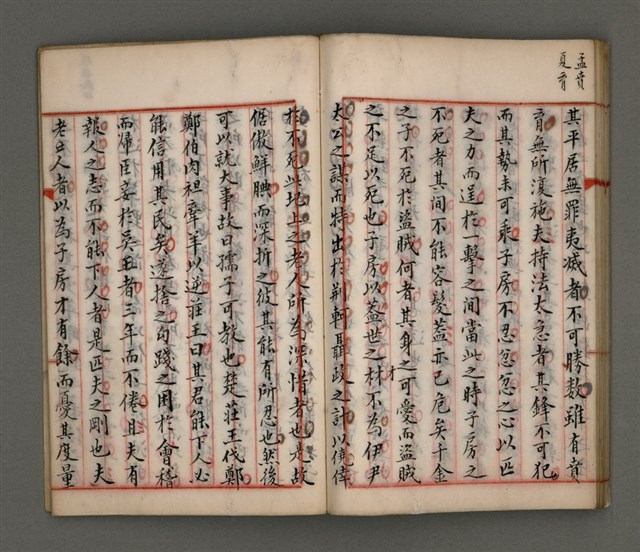 孟賁
夏育
其平居無罪夷滅者不可勝數雖有賁
育無所復施夫持法太急者其鋒不可犯
而其勢未可乘子房不忍忿忿之心以匹
夫之力而逞於一擊之間當此之時子房之
不死者其間不能容髮蓋亦已危矣千金
之子不死於盜賊何者其身之可愛而盜賊
之不足以死也子房以蓋世之才不為伊尹
太公之謀而特出於荊軻聶政之計以僥倖
於不死此圯上之老人所為深惜者也是故
倨傲鮮腆而深折之彼其能有所忍也然後
可以就大事故曰孺子可教也楚莊王伐鄭
鄭伯肉袒牽羊以逆莊王曰其君能下人必
能信用其民矣遂捨之勾踐之困於會稽
而歸臣妾於吳王者三年而不倦且夫有
報人之志而不能下人者是匹夫之剛也夫
老人者以為子房才有餘而憂其度量